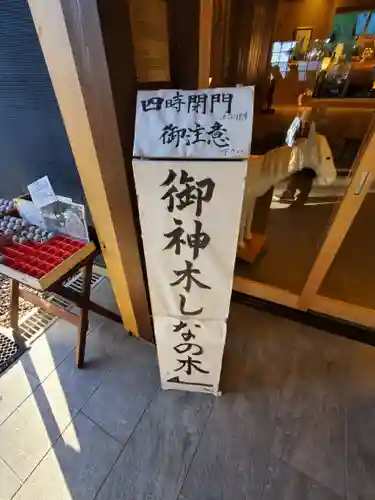 四時閉門
御注意
下さい
御神木
しなの木